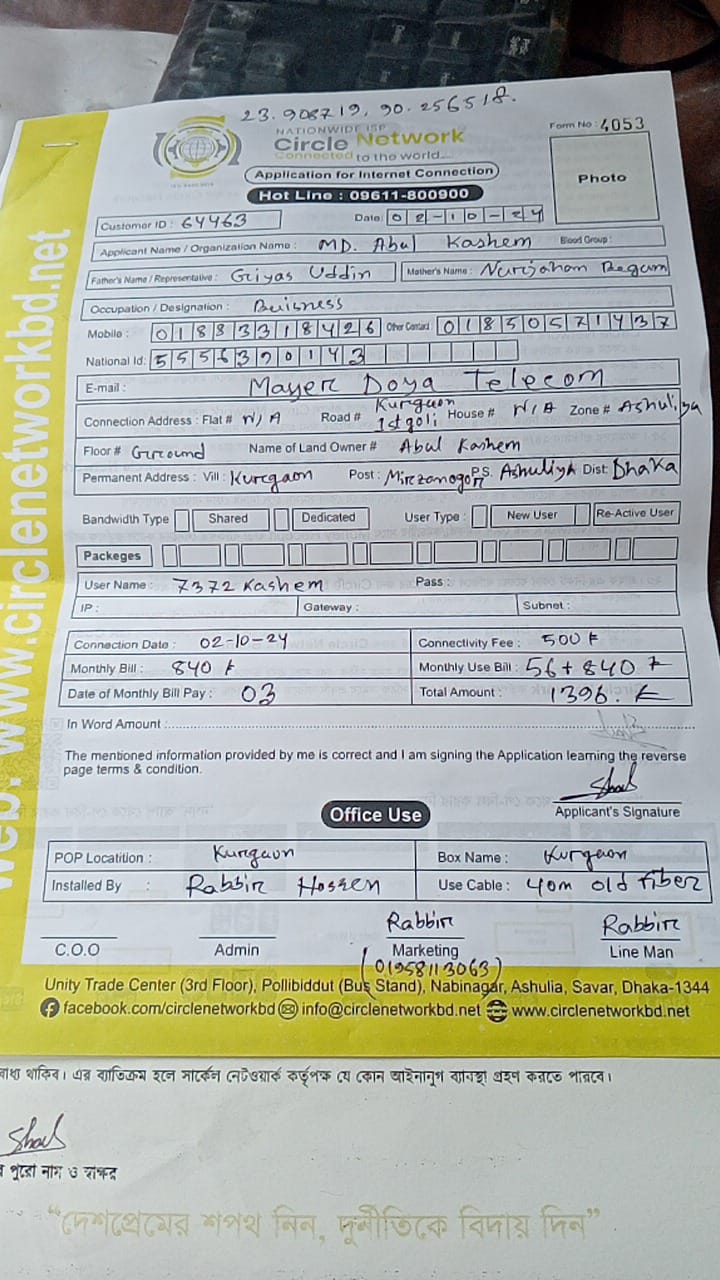 23.908719, 90.256518.
NATIONWIDE ISP
Circle Network
Connected to the world....
Form No : 4053
Application for Internet Connection
Hot Line : 09611-800900
Photo
Customer ID : 64463 Date: 02-10-24
Applicant Name / Organization Name : MD. Abul Kashem Blood Group :
Father's Name / Representative : Giyas Uddin Mother's Name : Nurjaham Begum
Occupation / Designation : Buisness
Mobile : 01833318426 Other Contact 01850571437
National Id: 5556320143
E-mail : Mayer Doya Telecom
Connection Address : Flat # N/A Road # Kurgaon 1st goli House # N/A Zone # Ashuliya
Floor # Ground Name of Land Owner # Abul Kashem
Permanent Address : Vill : Kurgaon Post : Mirzanogor P.S. Ashuliyh Dist: Dhaka
Bandwidth Type Shared Dedicated User Type : New User Re-Active User
Packeges
User Name : 7372 Kashem Pass :
IP : Gateway : Subnet :
Connection Date : 02-10-24 Connectivity Fee : 500 ৳
Monthly Bill : 840 ৳ Monthly Use Bill : 56 + 840 ৳
Date of Monthly Bill Pay : 03 Total Amount : 1396. ৳
In Word Amount :
The mentioned information provided by me is correct and I am signing the Application learning the reverse
page terms & condition.
Applicant's Signature
Office Use
POP Locatition : Kurgaon Box Name : Kurgaon
Installed By : Rabbir Hossen Use Cable : 40m old fiber
Rabbir Rabbir
C.O.O Admin Marketing Line Man
(01958113063)
Unity Trade Center (3rd Floor), Pollibiddut (Bus Stand), Nabinagar, Ashulia, Savar, Dhaka-1344
facebook.com/circlenetworkbd info@circlenetworkbd.net www.circlenetworkbd.net
web: www.circlenetworkbd.net
বাধ্য থাকিব। এর ব্যতিক্রম হলে সার্কেল নেটওয়ার্ক কর্তৃপক্ষ যে কোন আইনানুগ ব্যবস্থা গ্রহণ করতে পারবে।
পুরো নাম ও স্বাক্ষর
“দেশপ্রেমের শপথ নিন, দুর্নীতিকে বিদায় দিন”